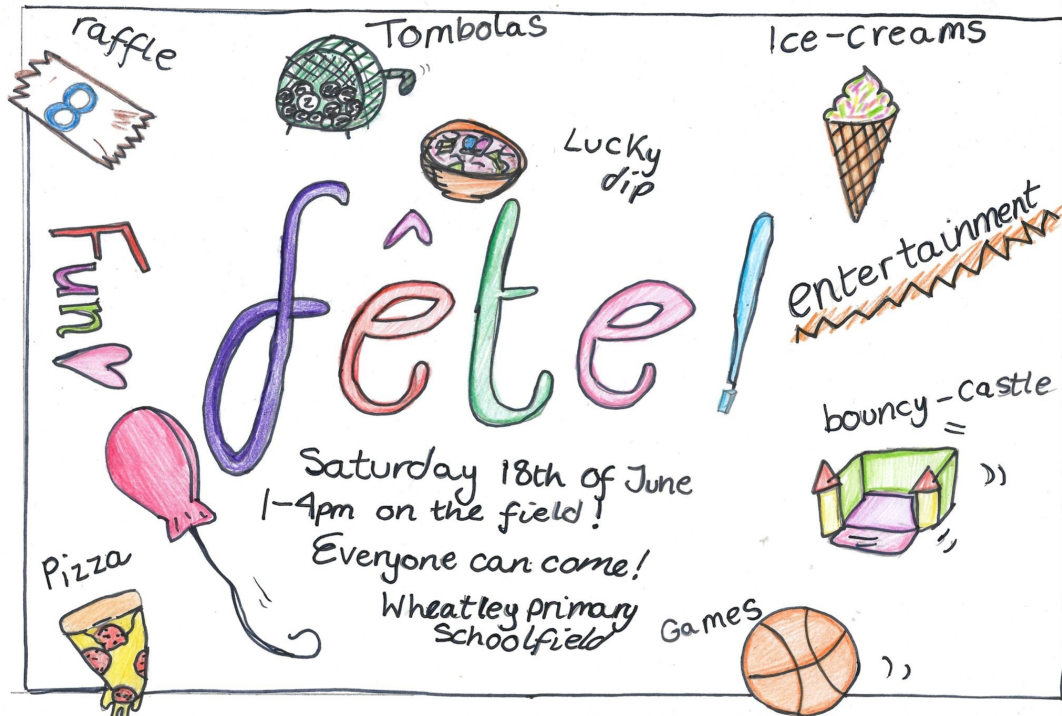 raffle
Tombolas
Ice-creams
8
2
Lucky
dip
Fun
fête!
entertainment
bouncy-castle
Saturday 18th of June
1-4pm on the field!
Everyone can come!
Wheatley primary
Schoolfield
Pizza
Games